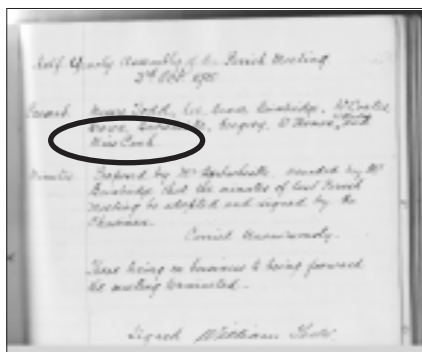 Half Yearly Assembly of the Parish Meeting
2nd Oct
Present Messrs Todd, Bainbridge,
Gregory,
Miss Cook
Minutes Proposed by Mr seconded by Mr
Bainbridge that the minutes of last Parish
Meeting be adopted and signed by the
Chairman.
Carried Unanimously.
There being no business to bring forward
the meeting terminated.
Signed William